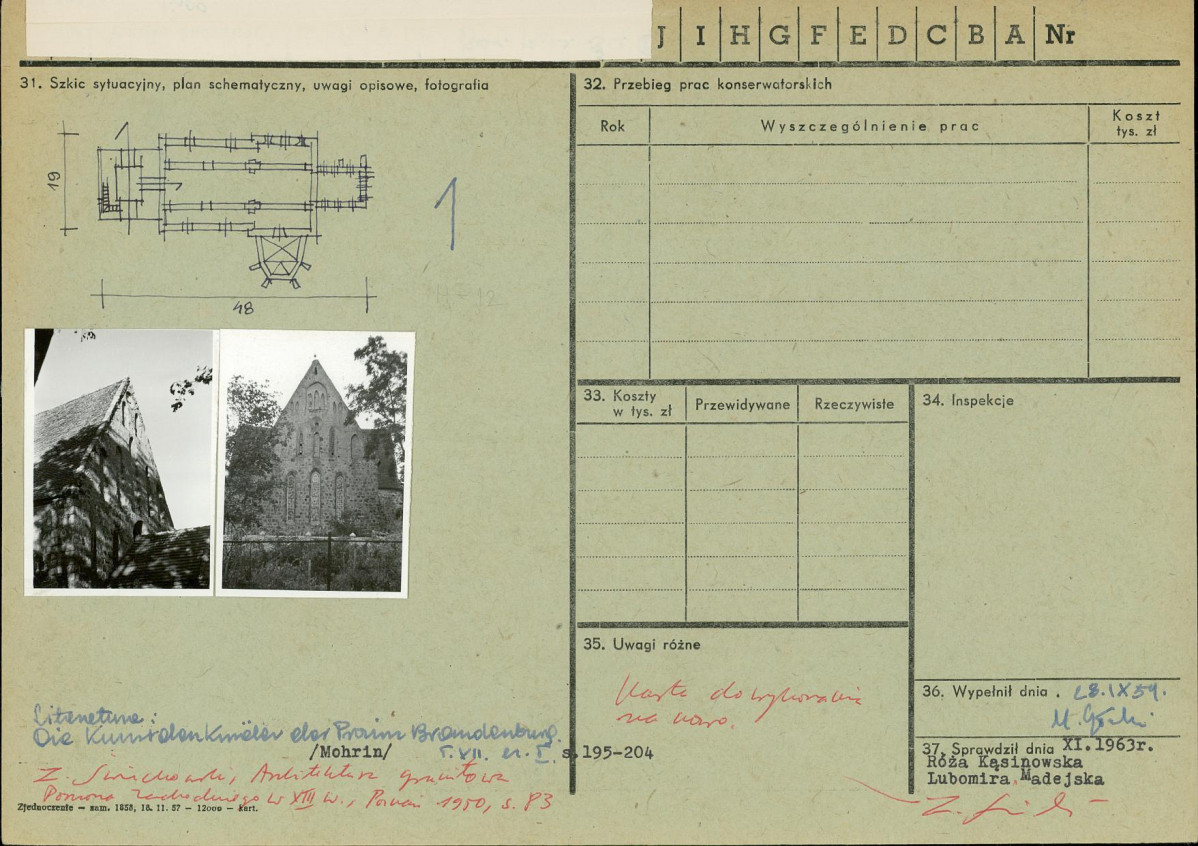 J I H G F E D C B A Nr
31. Szkic sytuacyjny, plan schematyczny, uwagi opisowe, fotografia
19
48
1
H = 12
32. Przebieg prac konserwatorskich
Rok
Wyszczególnienie prac
Koszt
tys. zł
33. Koszty
w tys. zł
Przewidywane
Rzeczywiste
34. Inspekcje
35. Uwagi różne
Karta do wykonania
na nowo.
36. Wypełnił dnia . 28.IX 59.
37. Sprawdził dnia XI.1963r.
Róża Kąsinowska
Lubomira Madejska
Literatura:
Die Kunstdenkmäler der Provinz Brandenburg.
/Mohrin/ T. VII. cz. I. s.195-204
Z. Świechowski, Architektura granitowa
Pomorza Zachodniego w XIII w., Poznań 1950, s. 83
Zjednoczenie — zam. 1858, 16. 11. 57 — 12000 — kart.